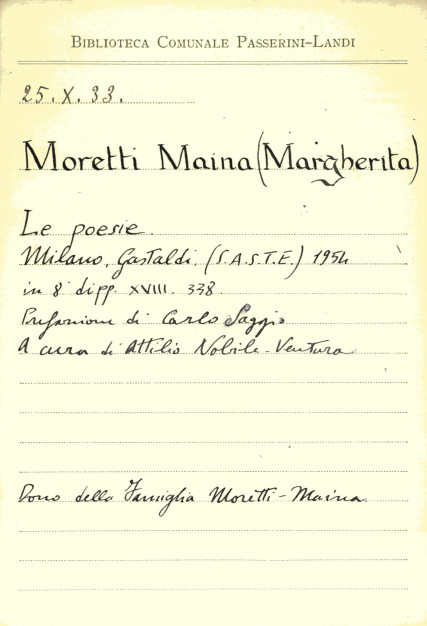 BIBLIOTECA COMUNALE PASSERINI-LANDI
25. X. 33.
Moretti Maina (Margherita)
Le poesie.
Milano, Gastaldi, (S.A.S.T.E.) 1954
in 8° di pp. XVIII. 338.
Prefazione di Carlo Saggio
A cura di Attilio Nobile-Ventura
Dono della Famiglia Moretti-Maina.